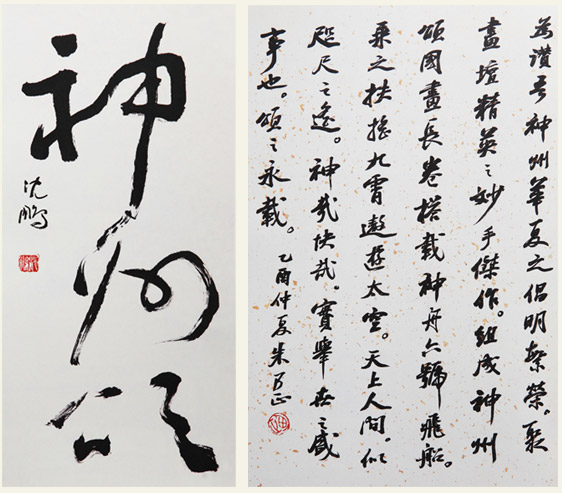 神州颂
沈鹏
为讚吾神州華夏之倡明繁榮。聚
畫壇精英之妙手傑作。組成神州
頌國畫長卷搭載神舟六號飛船。
乘之扶搖九霄遨遊太空。天上人間。似
咫尺之遙。神哉快哉。實舉世之盛
事也。頌之永載。
乙酉仲夏朱乃正